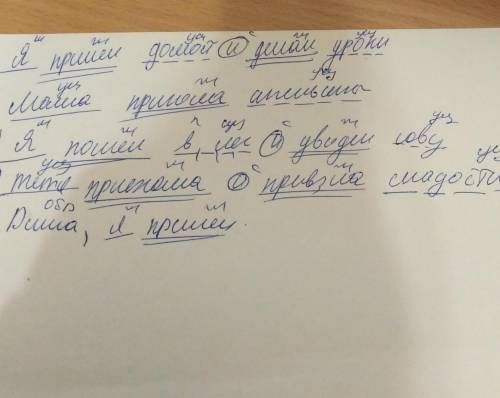 Я пришел домой и делал уроки
Мама принесла апельсины
Я пошел в лес и увидел сову
тетя приехала и привезла сладости
Дима, я пришел.